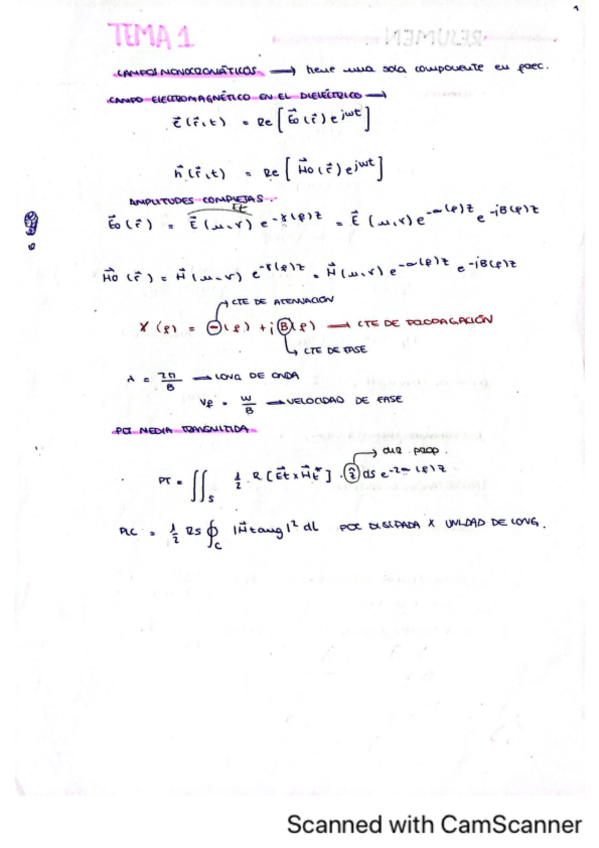 TEMA 1
CAMPOS MONOCROMÁTICOS ⟶ tiene una sola componente en frec.
CAMPO ELECTROMAGNÉTICO EN EL DIELÉCTRICO ⟶
e⃗(r⃗,t) = Re[E⃗o(r⃗)e^jwt]
h⃗(r⃗,t) = Re[H⃗o(r⃗)e^jwt]
AMPLITUDES COMPLEJAS.
Et
E⃗o(r⃗) = E⃗(u,v) e^-γ(f)z = E⃗(u,v)e^-α(f)z e^-jβ(f)z
H⃗o(r⃗) = H⃗(u,v) e^-γ(f)z = H⃗(u,v) e^-α(f)z e^-jβ(f)z
CTE DE ATENUACIÓN
γ(f) = α(f) + jβ(f) ⟶ CTE DE PROPAGACIÓN
CTE DE FASE
λ = 2π/β ⟶ LONG DE ONDA
Vf = w/β ⟶ VELOCIDAD DE FASE
POT MEDIA TRANSMITIDA
DIR. PROP.
PT = ∬s 1/2 R[E⃗t x H⃗t*] · ẑ ds e^-2α(f)z
PLC = 1/2 Rs ∮c |H⃗tang|² dL POT DISIPADA X UNIDAD DE LONG.
Scanned with CamScanner